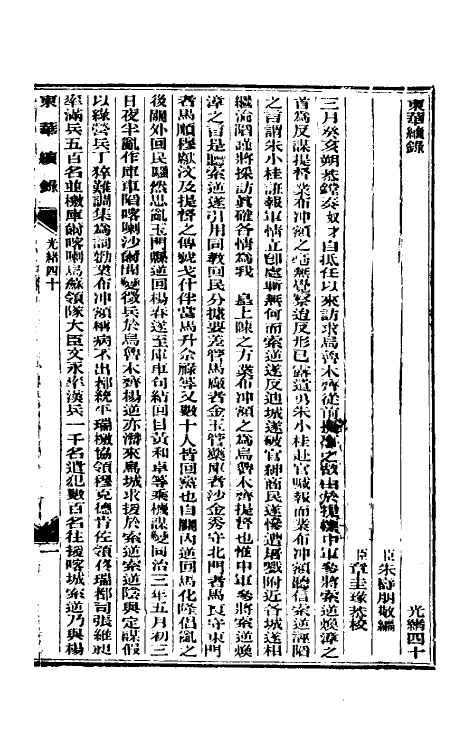 東華續錄
光緒四十
臣朱壽朋敬編
臣章圭瑑恭校
三月癸亥朔恭鏜奏奴才自抵任以來訪求烏魯木齊從前之由於提標中軍參將索逆煥漳之
首爲反謀提督業布冲額之毫無覺察迨反形已露遣勇朱小桂赴官喊報而業布冲額聽信索逆誣陷
之言謂朱小桂誑報軍情立卽處斬無何而索逆遂反迪城遂破官紳商民遂慘遭屠戮附近各城遂相
繼淪陷謹將採訪眞確各情爲我 皇上陳之方業布冲額之爲烏魯木齊提督也惟中軍參將索逆煥
漳之言是聽索逆遂引用同敎回民分據要差管馬廠者金玉管藥庫者沙金秀守北門者馬良守東門
者馬順穆獻汶及提督之傳號戈什伴當馬升佘祿等又數十人皆回黨也自關內逆回馬化隆倡亂之
後關外回民騷然思亂玉門縣逆回楊春遂至庫車句結回目黃和卓等乘機謀變同治三年五月初三
日夜半亂作庫車陷喀喇沙爾聞變徵兵於烏魯木齊楊逆亦潛來烏城求援於索逆索逆陰與定謀假
以綠營兵丁猝難調集爲詞勃業布冲額稱病不出都統平瑞檄協領穆克德肯佐領佟瑞都司張維恕
率滿兵五百名並檄庫爾喀喇烏蘇領隊大臣文永率漢兵一千名遣犯數百名往援喀城索逆乃與楊
東華續錄
光緒四十
一